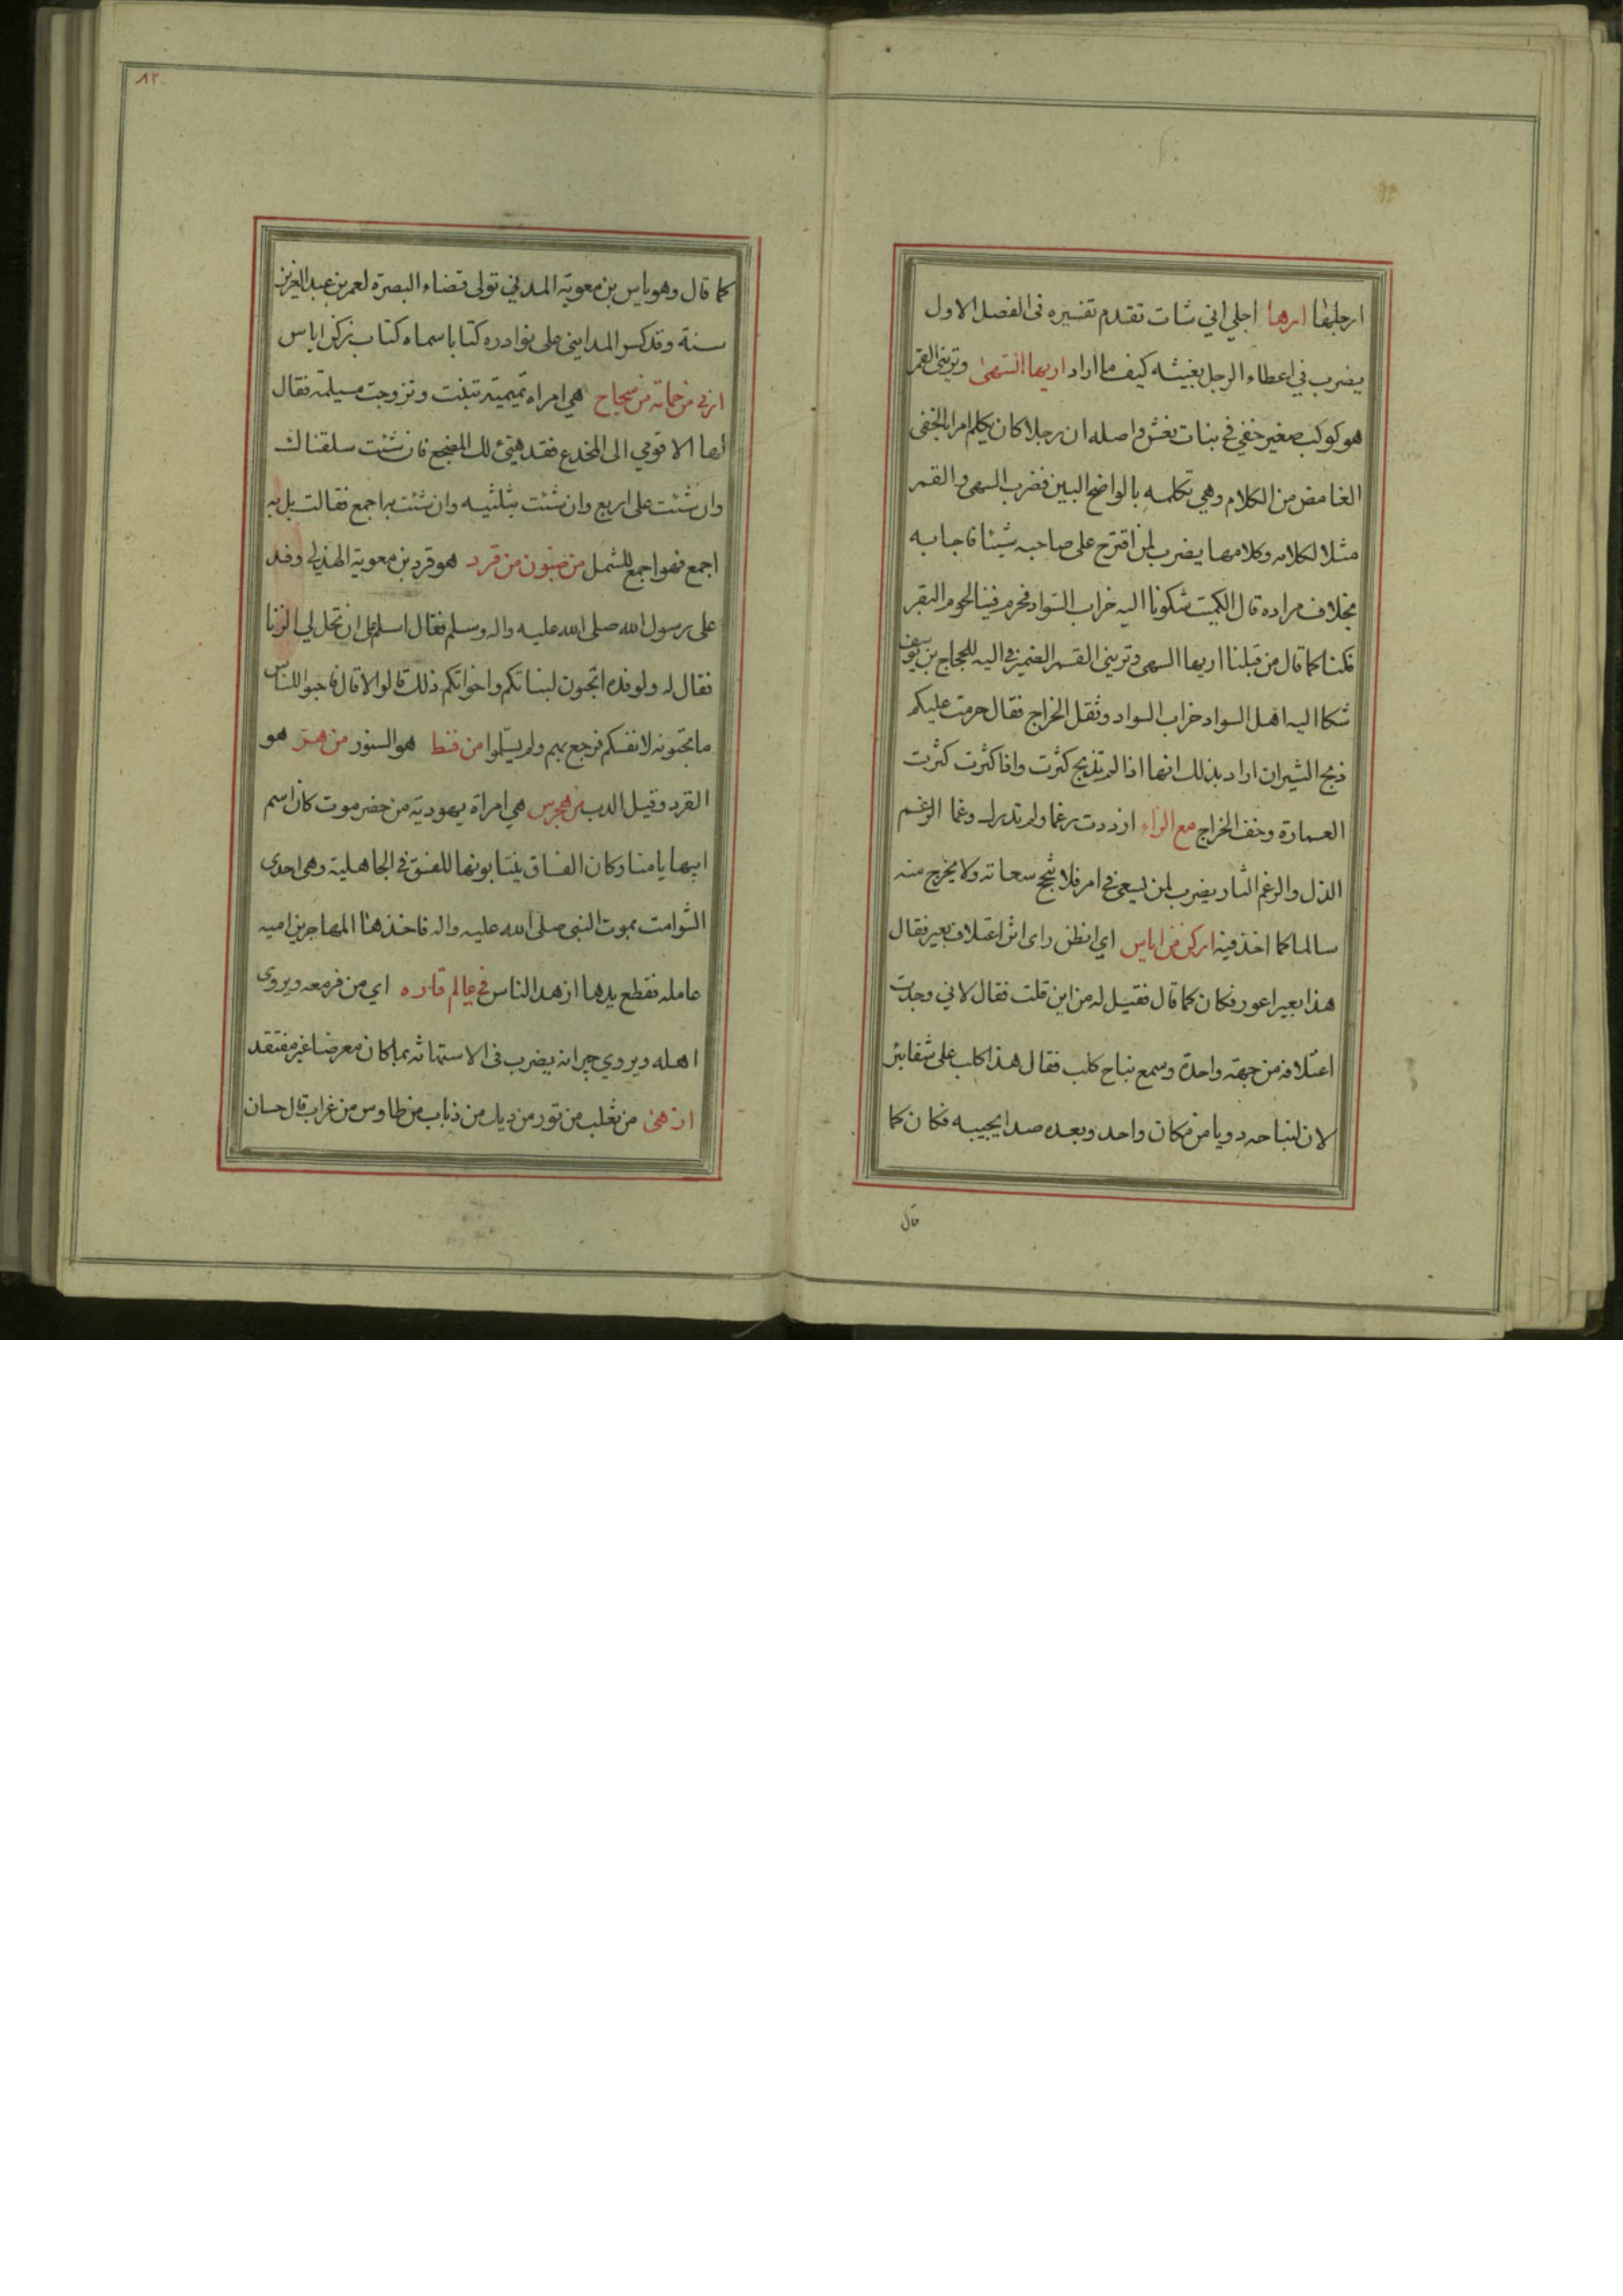 ارجلها ارها اجلي اني شات تقدم تفسيره فى الفصل الاول
يضرب في اعطاء الرجل بغيشه كيف ما اراد اريها السهى وتريني القمر
هو كوكب صغير خفي في بنات نعش واصله ان رجلا كان يكلم امراة بالخفى
الغامض من الكلام وهي تكلمه بالواضح البين فضرب السهى والقمر
مثلا لكلامه وكلامها يضرب لمن اقترح على صاحبه شيئا فاجابه
بخلاف مراده قال الكميت شكونا اليه خراب السواد فحرم فينا لحوم البقر
فكنا كما قال من قبلنا اريها السهى وتريني القمر الضمير في اليه للحجاج بن يوسف
شكا اليه اهل السواد خراب السواد وثقل الخراج فقال حرمت عليكم
ذبح الثيران اراد بذلك انها اذا لم تذبح كثرت واذا كثرت كثرت
العمارة وخف الخراج مع الزاء ازددت رغما ولم تدرك وغما الرغم
الذل والوغم الثار يضرب لمن يسعى في امر فلا ينجح سعاته ولا يخرج منه
سالما كما اخذ فيه ازكن من اياس اي افطن راى اثر اعتلاف بعير فقال
هذا بعير اعور فكان كما قال فقيل له من اين قلت فقال لاني وجدت
اعتلافه من جهة واحدة وسمع نباح كلب فقال هذا كلب على شفا بئر
لان لنباحه دويا من مكان واحد وبعده صدا يجيبه فكان كما
قال
٨٢
كما قال وهو ياس بن معوية المدني تولى قضاء البصرة لعمر بن عبد العزيز
سنة وقد كسر المدايني على نوادره كتابا سماه كتاب زكن اياس
ازنى من حمامة من سجاح هي امراه تميمية تنبئت وتزوجت مسيلمة فقال
لها الا قومي الى المخدع فقد هيئ لك المضجع فان شئت سلقناك
وان شئت على اربع وان شئت بثلثيه وان شئت به اجمع فقالت بل به
اجمع فهو اجمع للشمل من ضيون من قرد هو قرد بن معوية الهذلي وفد
على رسول الله صلى الله عليه واله وسلم فقال اسلم على ان تحل لي الزنا
فقال له ولوفده اتحبون لبناتكم واخواتكم ذلك قالوا لا قال فاحبوا للناس
ما تحبونه لانفسكم فرجع بهم ولم يسلموا من قط هو السنور من هر هو
القرد وقيل الدب من هجرس هي امراة يهودية من حضرموت كان اسم
ابيها يامنا وكان الفساق ينتابونها للفسق في الجاهلية وهي احدى
الشوامت بموت النبي صلى الله عليه واله فاخذها المهاجر بن اميه
عامله فقطع يدها ازهد الناس في عالم قاره اي من قرمعه ويروى
اهله ويروي جيرانه يضرب في الاستهانة بما كان معرضا غير مفتقد
ازهى من ثعلب من ثور من ديك من ذباب من طاوس من غراب قال حسان